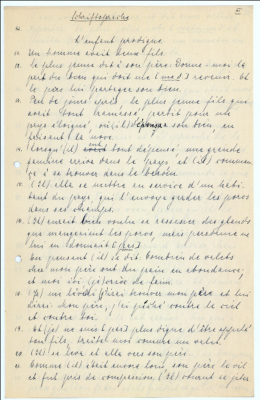 Schriftsprache
L'enfant prodigue.
11. Un homme avait deux fils.
12. Le plus jeune dit à son père: Donne-moi la
part du bien qui doit me ( ) revenir. Et
le père leur partagea son bien.
13. Peu de jours après, le plus jeune fils, qui
avait tout ramassé, partit pour un
pays éloigné, où (il) son bien, en
14. Lorsqu'(il) eut tout dépensé, une grande
famine arriva dans le pays et (il) commen-
ça à se trouver dans le besoin.
15. (Il) alla se mettre au service d'un habi-
tant du pays qui l'envoya garder les porcs
dans ses champs.
16. (Il) aurait bien voulu se rassasier des glands
que mangeaient les porcs, mais personne ne
lui en donnait (pas).
17. En pensant (il) se dit: Combien de valets
chez mon père ont du pain en abondance,
et moi ici (je) meurs de faim.
18. (Je) me lèverai j'irai trouver mon père et lui
dirai: Mon père, j'ai péché contre le ciel
et contre toi.
19. Et (je) ne suis (pas) plus digne d'être appelé
ton fils, traite-moi comme un valet.
20. (Il) se leva et alla vers son père.
21. Comme (il) était encore loin, son père le vit
et fut pris de compassion. (Il) courut se jeter